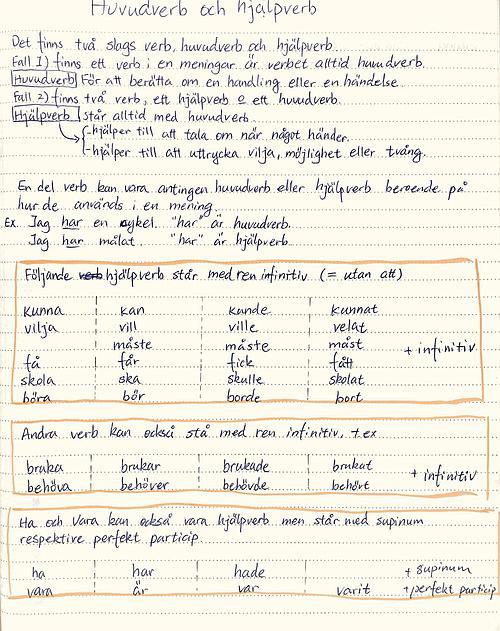 Huvudverb och hjälpverb
Det finns två slags verb, huvudverb och hjälpverb.
Fall 1) finns ett verb i en meningar är verbet alltid huvudverb.
Huvudverb För att berätta om en handling eller en händelse.
Fall 2) finns två verb, ett hjälpverb o ett huvudverb.
Hjälpverb står alltid med huvudverb.
-hjälper till att tala om när något händer.
-hjälper till att uttrycka vilja, möjlighet eller tvång.
En del verb kan vara antingen huvudverb eller hjälpverb beroende på
hur de används i en mening.
Ex. Jag har en cykel. "har" är huvudverb.
Jag har målat. "har" är hjälpverb.
Följande verb hjälpverb står med ren infinitiv (= utan att)
kunna kan kunde kunnat
vilja vill ville velat
måste måste måst + infinitiv
få får fick fått
skola ska skulle skolat
böra bör borde bort
Andra verb kan också stå med ren infinitiv, t.ex
bruka brukar brukade brukat + infinitiv
behöva behöver behövde behövt
Ha och Vara kan också vara hjälpverb men står med supinum
respektive perfekt particip.
ha har hade + supinum
vara är var varit +perfekt particip